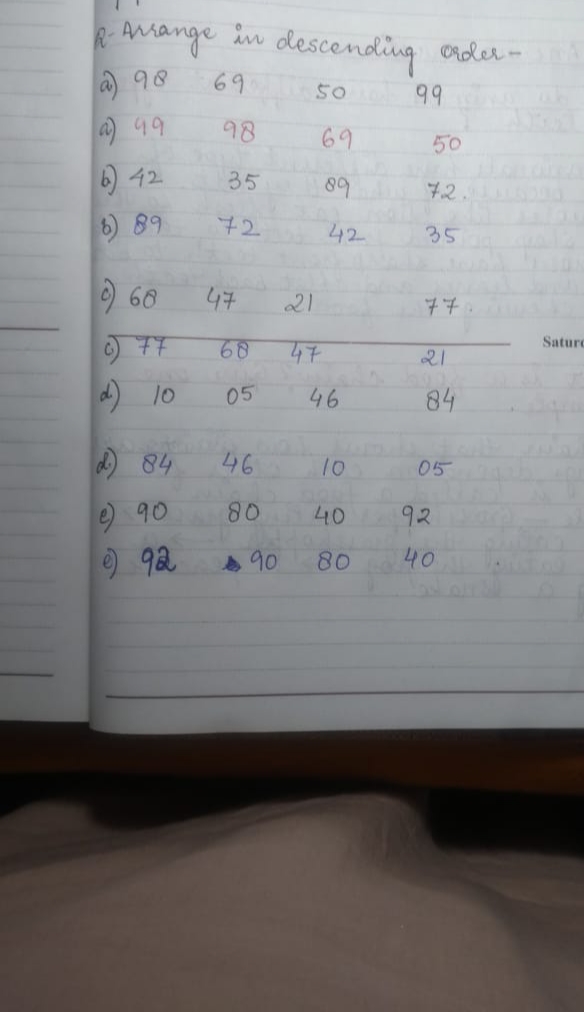 2- Arrange in descending order-
a) 98 69 50 99
a) 99 98 69 50
b) 42 35 89 72.
b) 89 72 42 35
c) 68 47 21 77.
Satur
c) 77 68 47 21
d) 10 05 46 84
d) 84 46 10 05
e) 90 80 40 92
e) 92 90 80 40